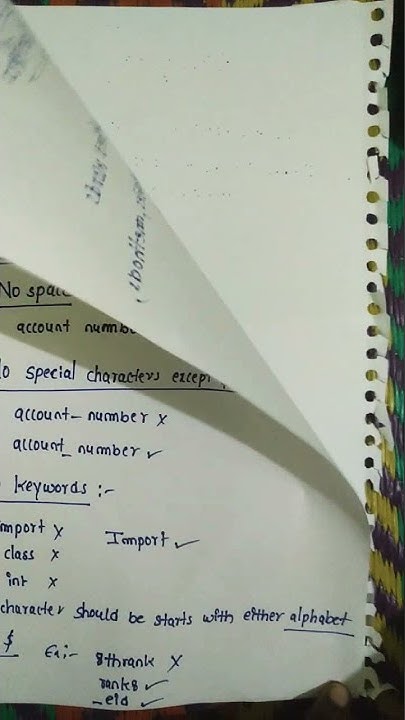 No space
account numbe
No special characters except
account-number x
account_number ✓
keywords :-
import x Import ✓
class x
int x
character should be starts with either alphabet
$ Ex:- 8thrank x
rank8 ✓
_eid ✓